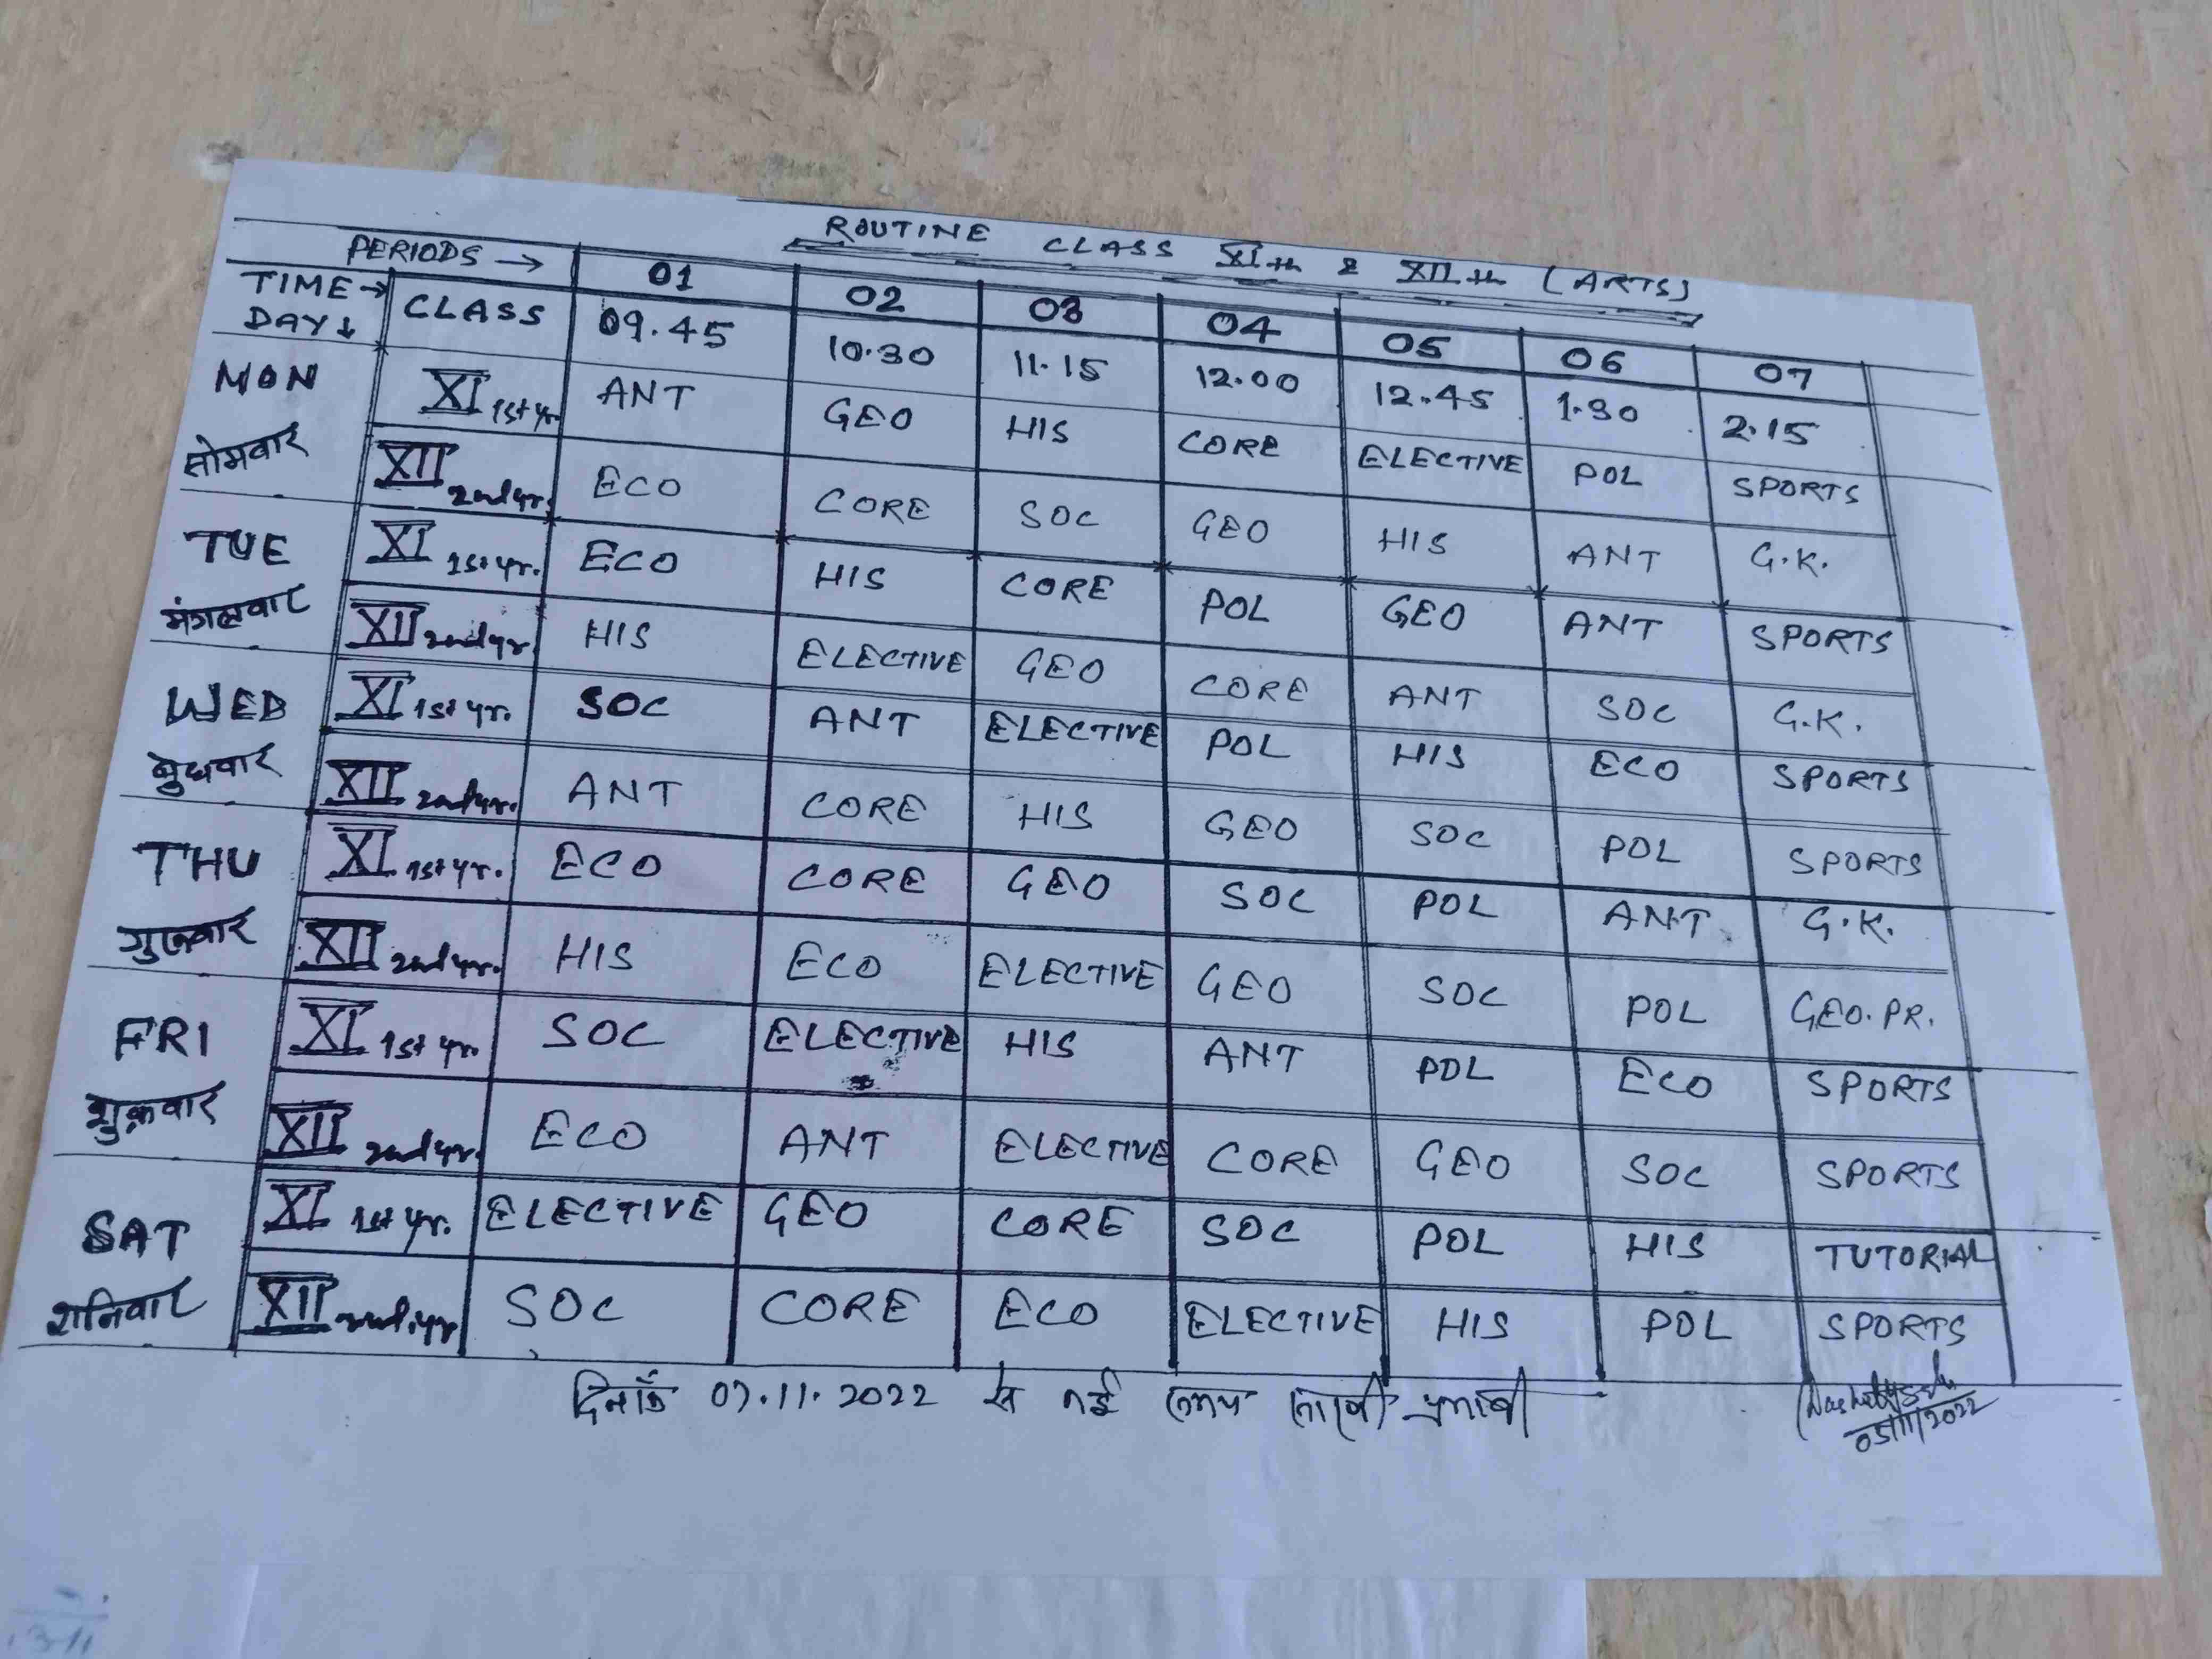 ROUTINE CLASS XIth & XIIth (ARTS)
PERIODS → 01 02 03 04 05 06 07
TIME → CLASS 09.45 10.30 11.15 12.00 12.45 1.30 2.15
DAY ↓
MON XI 1st yr. ANT GEO HIS CORE ELECTIVE POL SPORTS
सोमवार XII 2nd yr. ECO CORE SOC GEO HIS ANT G.K.
TUE XI 1st yr. ECO HIS CORE POL GEO ANT SPORTS
मंगलवार XII 2nd yr. HIS ELECTIVE GEO CORE ANT SOC G.K.
WED XI 1st yr. SOC ANT ELECTIVE POL HIS ECO SPORTS
बुधवार XII 2nd yr. ANT CORE HIS GEO SOC POL SPORTS
THU XI 1st yr. ECO CORE GEO SOC POL ANT G.K.
गुरुवार XII 2nd yr. HIS ECO ELECTIVE GEO SOC POL GEO. PR.
FRI XI 1st yr. SOC ELECTIVE HIS ANT POL ECO SPORTS
शुक्रवार XII 2nd yr. ECO ANT ELECTIVE CORE GEO SOC SPORTS
SAT XI 1st yr. ELECTIVE GEO CORE SOC POL HIS TUTORIAL
शनिवार XII 2nd. yr SOC CORE ECO ELECTIVE HIS POL SPORTS
दिनाँक 07.11.2022 से नई समय सारणी प्रभावी
05/11/2022